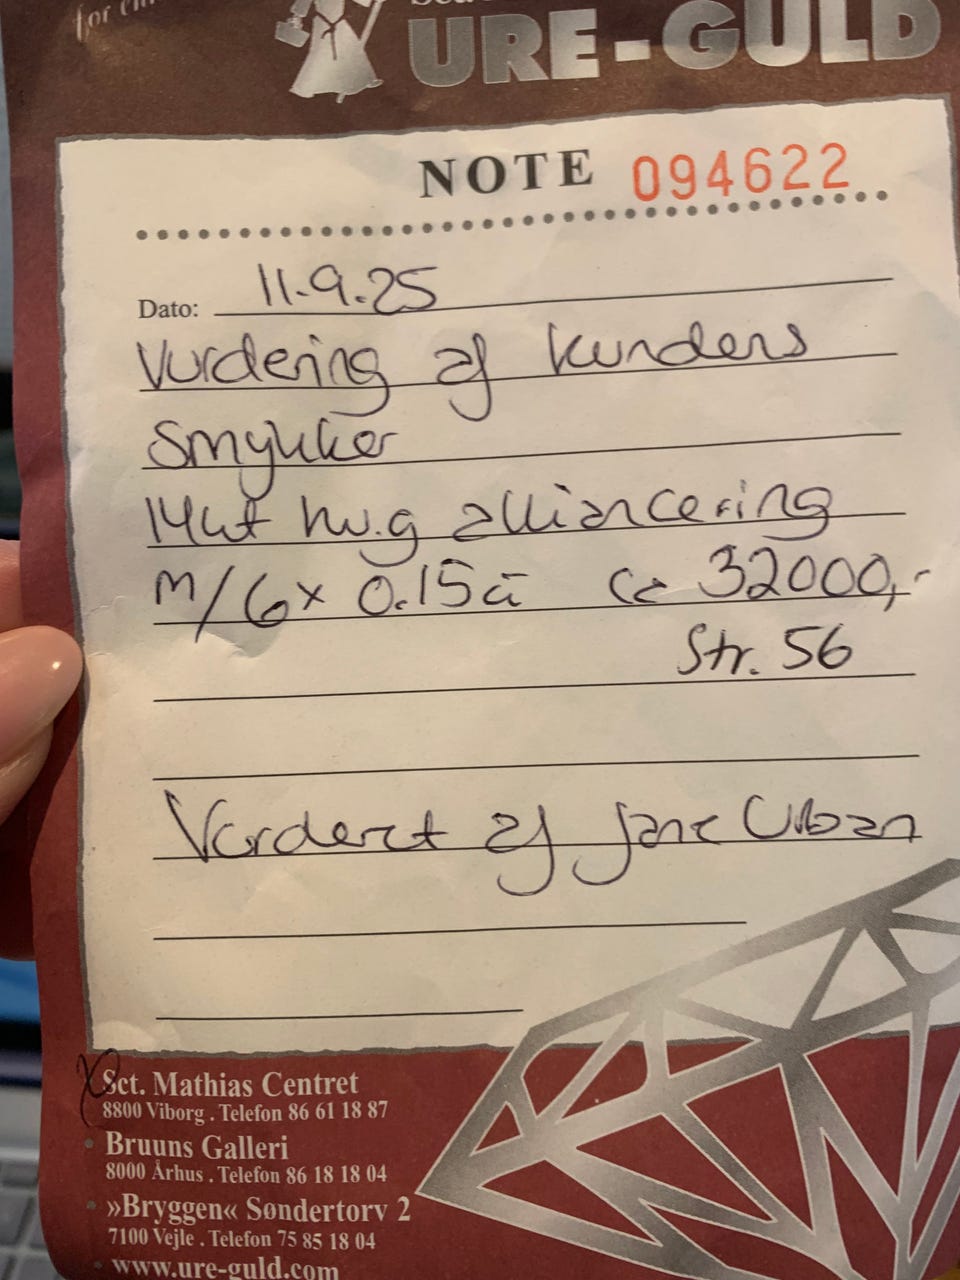 for en
URE-GULD
NOTE 094622
Dato: 11.9.25
Vurdering af kundens
Smykker
14kt hv.g alliancering
m/6x 0.15 ct ca 32000,-
Str. 56
Vurderet af Jane Urban
Sct. Mathias Centret
8800 Viborg . Telefon 86 61 18 87
• Bruuns Galleri
8000 Århus . Telefon 86 18 18 04
• »Bryggen« Søndertorv 2
7100 Vejle . Telefon 75 85 18 04
• www.ure-guld.com